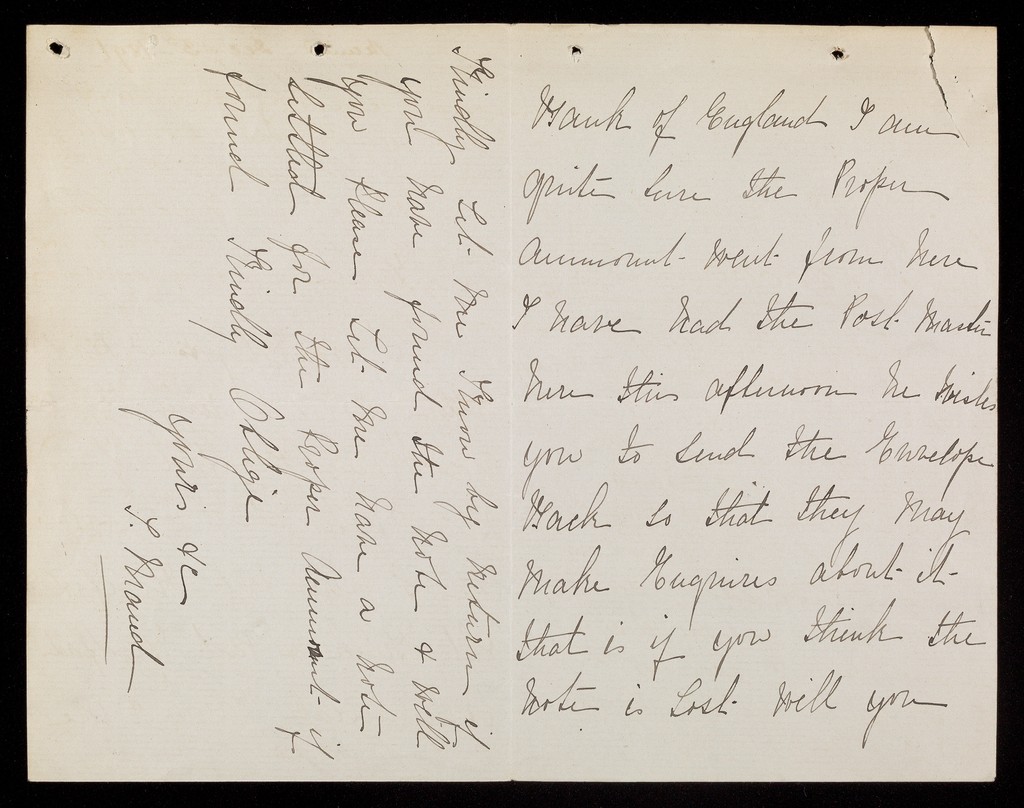 Bank of England I am
quite sure the Proper
ammount went from here
I have had the Post Master
here this afternoon he wishes
you to send the Envelope
Back so that they may
make Enquires about it
that is if you think the
note is Lost will you
Kindly Let me Know by return if
you have found the note & will
you Please Let me have a note
settled for the Proper Ammount if
found Kindly Oblige
yours &c
S. Maud